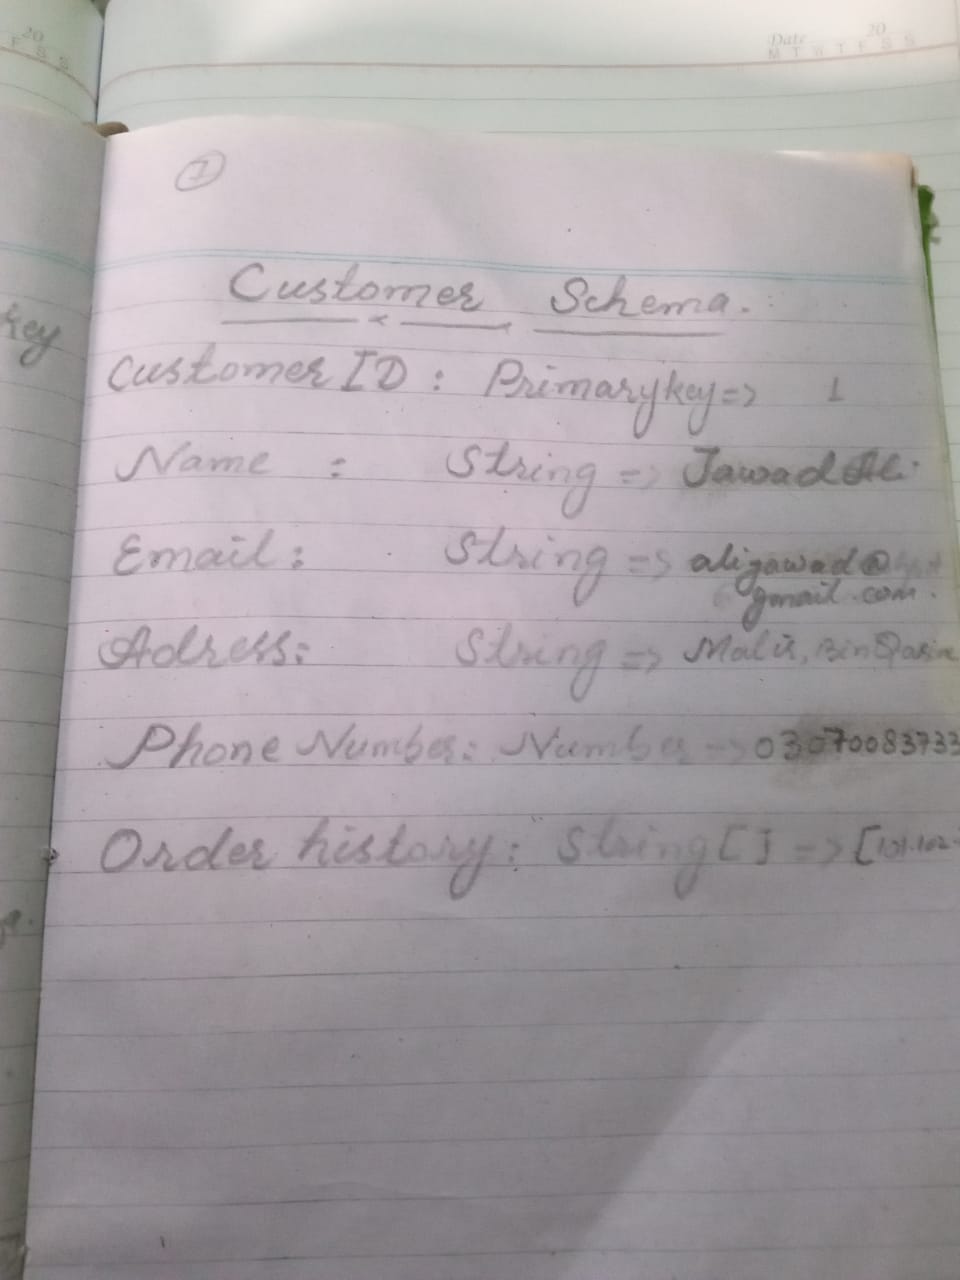 20
F S S
Date 20
M T W T F S S
1
Customer Schema.
key
Customer ID : Primary key => 1
Name : String => Jawad Ali
Email : String => alijawad@
gmail.com.
Adress: String => Malir, Bin Qasim
Phone Number: Number -> 03070083733
Order history: String [] => [101.102